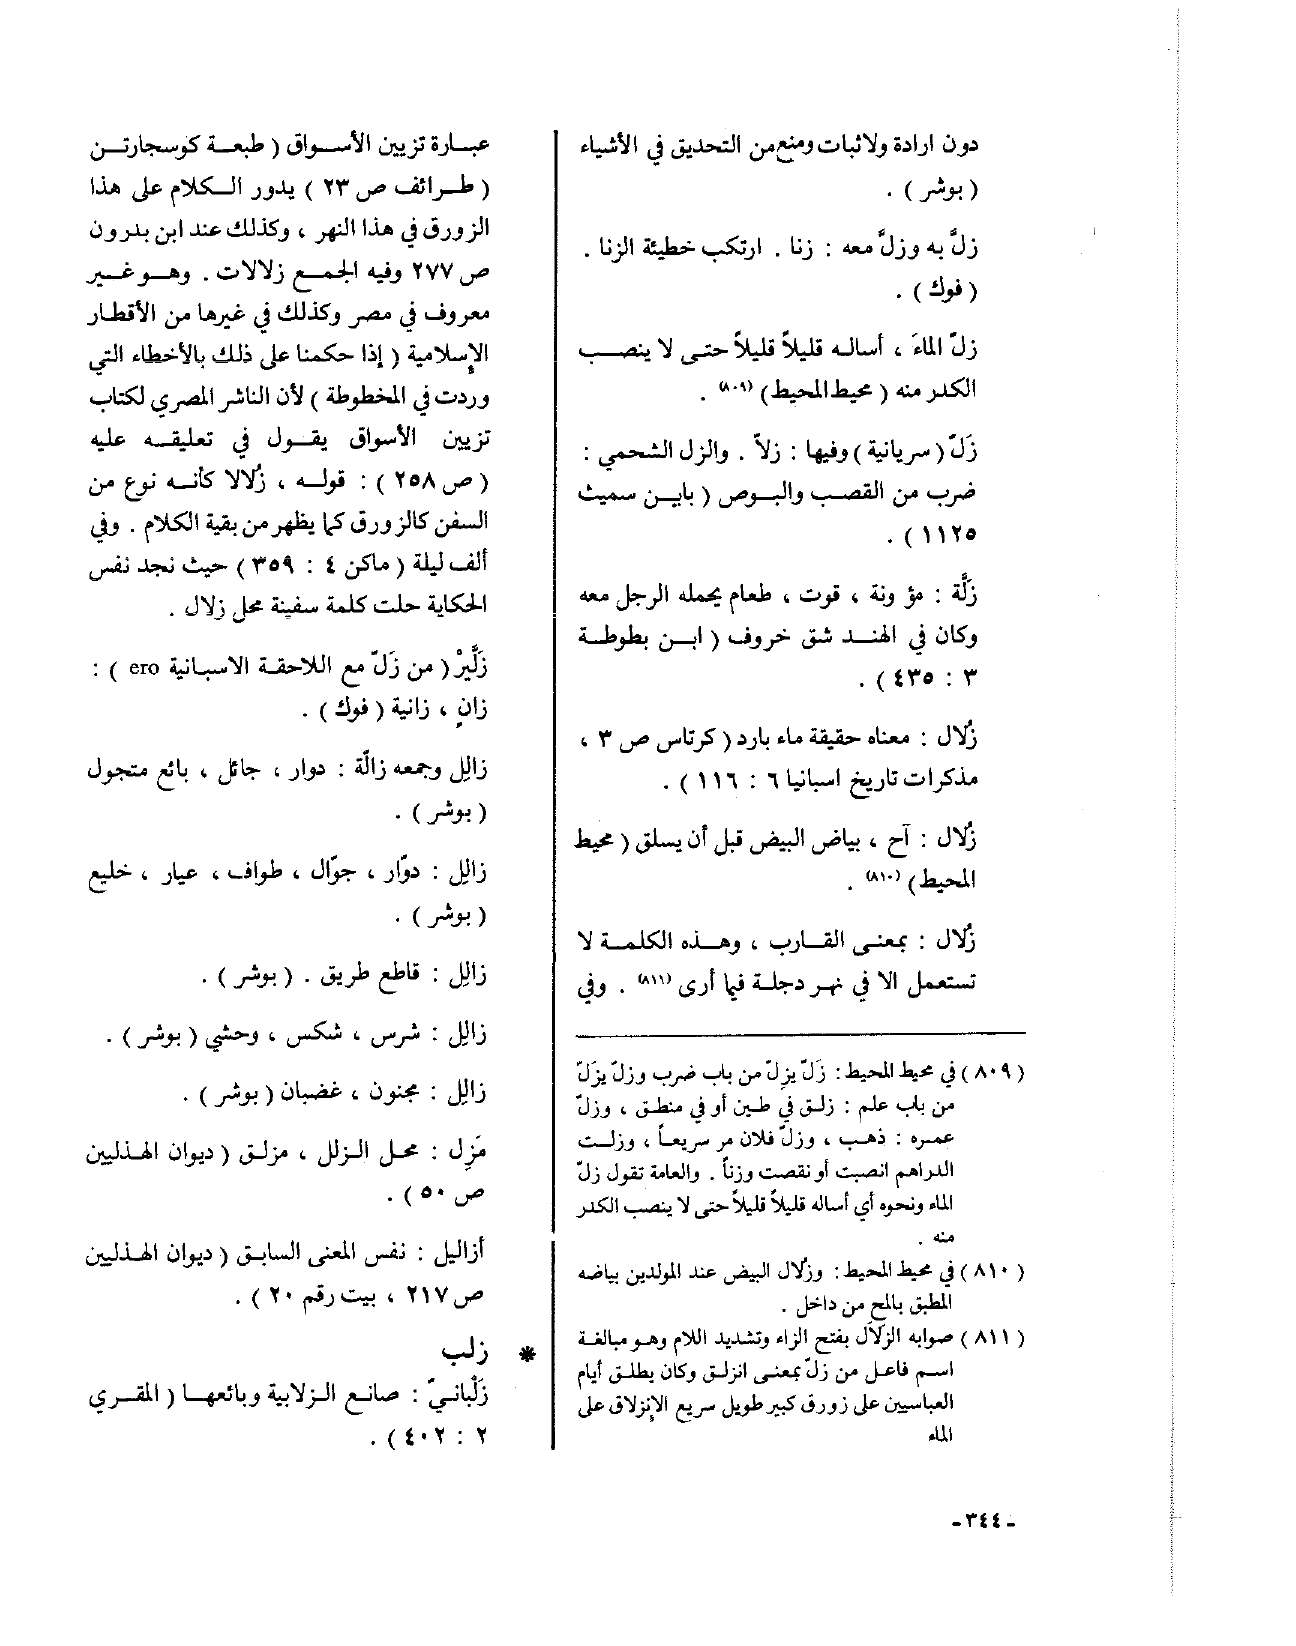 دون ارادة ولا ثبات ومنع من التحديق في الأشياء
( بوشر ) .
زلَّ به وزلَّ معه : زنا . ارتكب خطيئة الزنا .
( فوك ) .
زلّ الماءَ ، أساله قليلاً قليلاً حتى لا ينصب
الكدر منه ( محيط المحيط ) (٨٠٩) .
زَلّ ( سريانية ) وفيها : زلاّ . والزل الشحمي :
ضرب من القصب والبوص ( باين سميث
١١٢٥ ) .
زَلَّة : مؤونة ، قوت ، طعام يحمله الرجل معه
وكان في الهند شق خروف ( ابن بطوطة
٣ : ٤٣٥ ) .
زُلال : معناه حقيقة ماء بارد ( كرتاس ص ٣ ،
مذكرات تاريخ اسبانيا ٦ : ١١٦ ) .
زُلال : آح ، بياض البيض قبل أن يسلق ( محيط
المحيط ) (٨١٠) .
زُلال : بمعنى القارب ، وهذه الكلمة لا
تستعمل الا في نهر دجلة فيما أرى (٨١١) . وفي
( ٨٠٩ ) في محيط المحيط : زَلّ يزِلّ من باب ضرب وزلّ يزَلّ
من باب علم : زلق في طين أو في منطق ، وزلّ
عمره : ذهب ، وزلّ فلان مر سريعاً ، وزلت
الدراهم انصبت أو نقصت وزناً . والعامة تقول زلّ
الماء ونحوه أي أساله قليلاً قليلاً حتى لا ينصب الكدر
منه .
( ٨١٠ ) في محيط المحيط : وزُلال البيض عند المولدين بياضه
المطبق بالمح من داخل .
( ٨١١ ) صوابه الزلاّل بفتح الزاء وتشديد اللام وهو مبالغة
اسم فاعل من زلّ بمعنى انزلق وكان يطلق أيام
العباسيين على زورق كبير طويل سريع الإنزلاق على
الماء
عبارة تزيين الأسواق ( طبعة كوسجارتن
( طرائف ص ٢٣ ) يدور الكلام على هذا
الزورق في هذا النهر ، وكذلك عند ابن بدرون
ص ٢٧٧ وفيه الجمع زلالات . وهو غير
معروف في مصر وكذلك في غيرها من الأقطار
الإسلامية ( إذا حكمنا على ذلك بالأخطاء التي
وردت في المخطوطة ) لأن الناشر المصري لكتاب
تزيين الأسواق يقول في تعليقه عليه
( ص ٢٥٨ ) : قوله ، زُلالا كأنه نوع من
السفن كالزورق كما يظهر من بقية الكلام . وفي
ألف ليلة ( ماكن ٤ : ٣٥٩ ) حيث نجد نفس
الحكاية حلت كلمة سفينة محل زلال .
زَلَّيرْ ( من زَلّ مع اللاحقة الاسبانية ero ) :
زانٍ ، زانية ( فوك ) .
زالِل وجمعه زالّة : دوار ، جائل ، بائع متجول
( بوشر ) .
زالِل : دوّار ، جوّال ، طواف ، عيار ، خليع
( بوشر ) .
زالِل : قاطع طريق . ( بوشر ) .
زالِل : شرس ، شكس ، وحشي ( بوشر ) .
زالِل : مجنون ، غضبان ( بوشر ) .
مَزِل : محل الزلل ، مزلق ( ديوان الهذليين
ص ٥٠ ) .
أزاليل : نفس المعنى السابق ( ديوان الهذليين
ص ٢١٧ ، بيت رقم ٢٠ ) .
* زلب
زَلْبانيّ : صانع الزلابية وبائعها ( المقري
٢ : ٤٠٢ ) .
- ٣٤٤ -